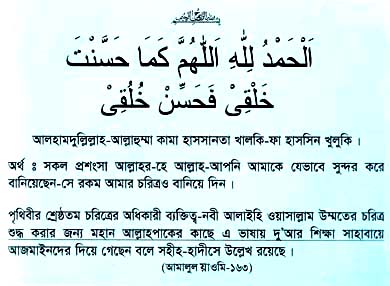 اَلْحَمْدُ لِلّٰهِ اَللّٰهُمَّ كَمَا حَسَّنْتَ
خَلْقِىْ فَحَسِّنْ خُلُقِىْ
আলহামদুল্লিল্লাহ-আল্লাহুম্মা কামা হাসসানতা খালকি-ফা হাসসিন খুলুকি ।
অর্থ ঃ সকল প্রশংসা আল্লাহর-হে আল্লাহ-আপনি আমাকে যেভাবে সুন্দর করে
বানিয়েছেন-সে রকম আমার চরিত্রও বানিয়ে দিন ।
পৃথিবীর শ্রেষ্ঠতম চরিত্রের অধিকারী ব্যক্তিত্ব-নবী আলাইহি ওয়াসাল্লাম উম্মতের চরিত্র
শুদ্ধ করার জন্য মহান আল্লাহপাকের কাছে এ ভাষায় দু'আর শিক্ষা সাহাবায়ে
আজমাইনদের দিয়ে গেছেন বলে সহীহ-হাদীসে উল্লেখ রয়েছে ।
(আমালুল য়াওমি-১৬৩)